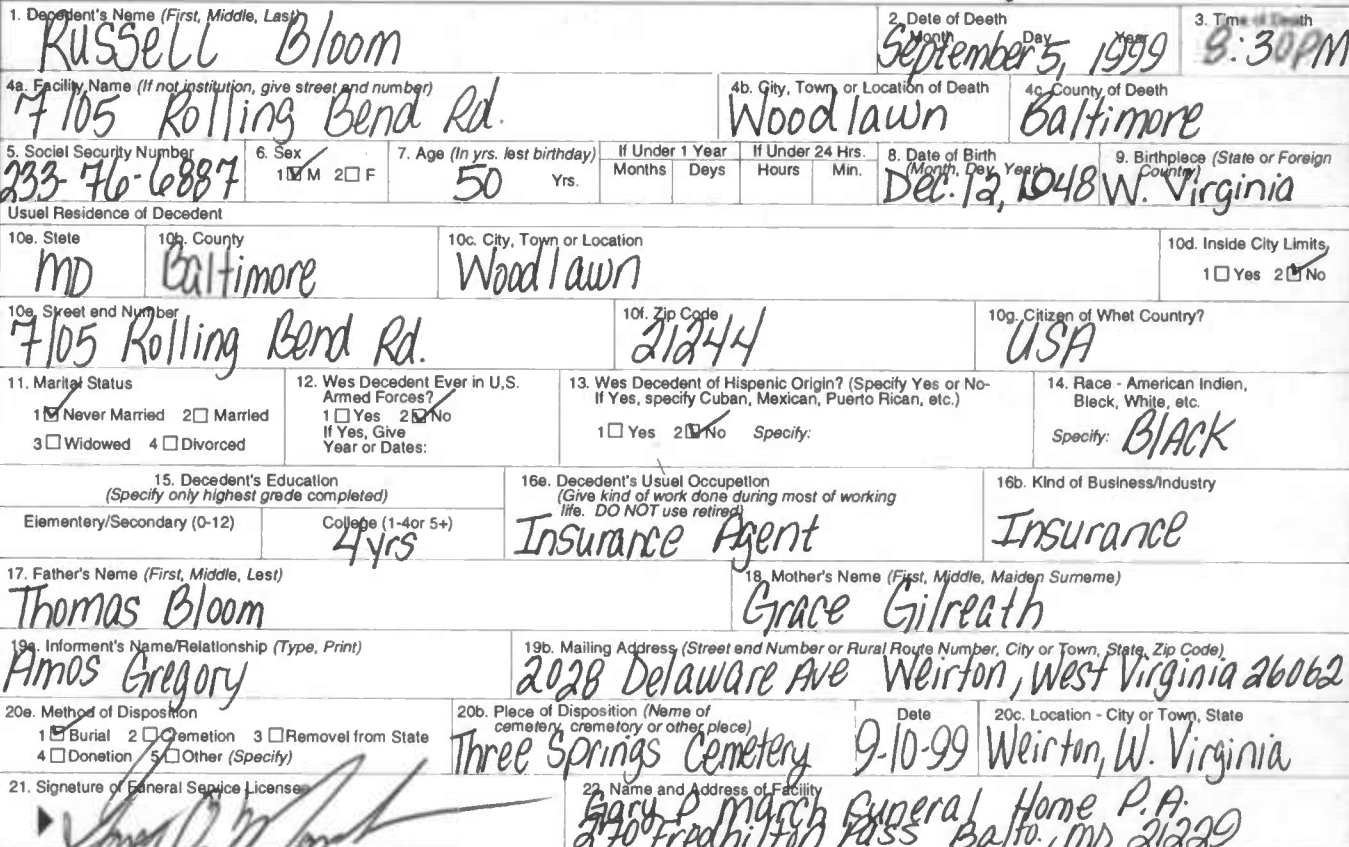 1. Decedent's Name (First, Middle, Last)
Russell Bloom
2. Dete of Deeth
Month Day Year
September 5, 1999
3. Time of Death
8:30PM
4a. Facility Name (If not institution, give street end number)
7105 Rolling Bend Rd.
4b. City, Town, or Location of Death
Woodlawn
4c. County of Death
Baltimore
5. Sociel Security Number
233-76-6887
6. Sex
1☑M 2☐ F
7. Age (In yrs. lest birthday)
50 Yrs.
If Under 1 Year
Months Deys
If Under 24 Hrs.
Hours Min.
8. Date of Birth
(Month, Day, Year)
Dec. 12, 1948
9. Birthplece (State or Foreign
Country)
W. Virginia
Usuel Residence of Decedent
10e. Stete
MD
10b. County
Baltimore
10c. City, Town or Location
Woodlawn
10d. Inside City Limits
1☐Yes 2☑No
10e. Street end Number
7105 Rolling Bend Rd.
10f. Zip Code
21244
10g. Citizen of Whet Country?
USA
11. Maritel Status
1☑Never Married 2☐ Married
3☐Widowed 4☐Divorced
12. Wes Decedent Ever in U.S.
Armed Forces?
1☐Yes 2☑No
If Yes, Give
Year or Dates:
13. Wes Decedent of Hispenic Origin? (Specify Yes or No-
If Yes, specify Cuban, Mexican, Puerto Rican, etc.)
1☐Yes 2☑No Specify:
14. Race - American Indien,
Bleck, White, etc.
Specify: Black
15. Decedent's Education
(Specify only highest grede completed)
Elementery/Secondary (0-12)
College (1-4or 5+)
4yrs
16e. Decedent's Usuel Occupetion
(Give kind of work done during most of working
life. DO NOT use retired)
Insurance Agent
16b. Kind of Business/Industry
Insurance
17. Father's Name (First, Middle, Lest)
Thomas Bloom
18. Mother's Name (First, Middle, Maiden Surneme)
Grace Gilreath
19a. Informent's Name/Relationship (Type, Print)
Amos Gregory
19b. Mailing Address (Street end Number or Rural Route Number, City or Town, State, Zip Code)
2028 Delaware Ave Weirton, West Virginia 26062
20e. Method of Disposition
1☑Burial 2☐Cremetion 3☐Removel from State
4☐Donetion 5☐Other (Specify)
20b. Plece of Disposition (Neme of
cemetery, cremetory or other plece)
Three Springs Cemetery
Dete
9-10-99
20c. Location - City or Town, State
Weirton, W. Virginia
21. Signeture of Funeral Service Licensee
22. Name and Address of Facility
Gary P March Funeral Home P.A.
270 Fredhilton Pass Balto., MD 21229